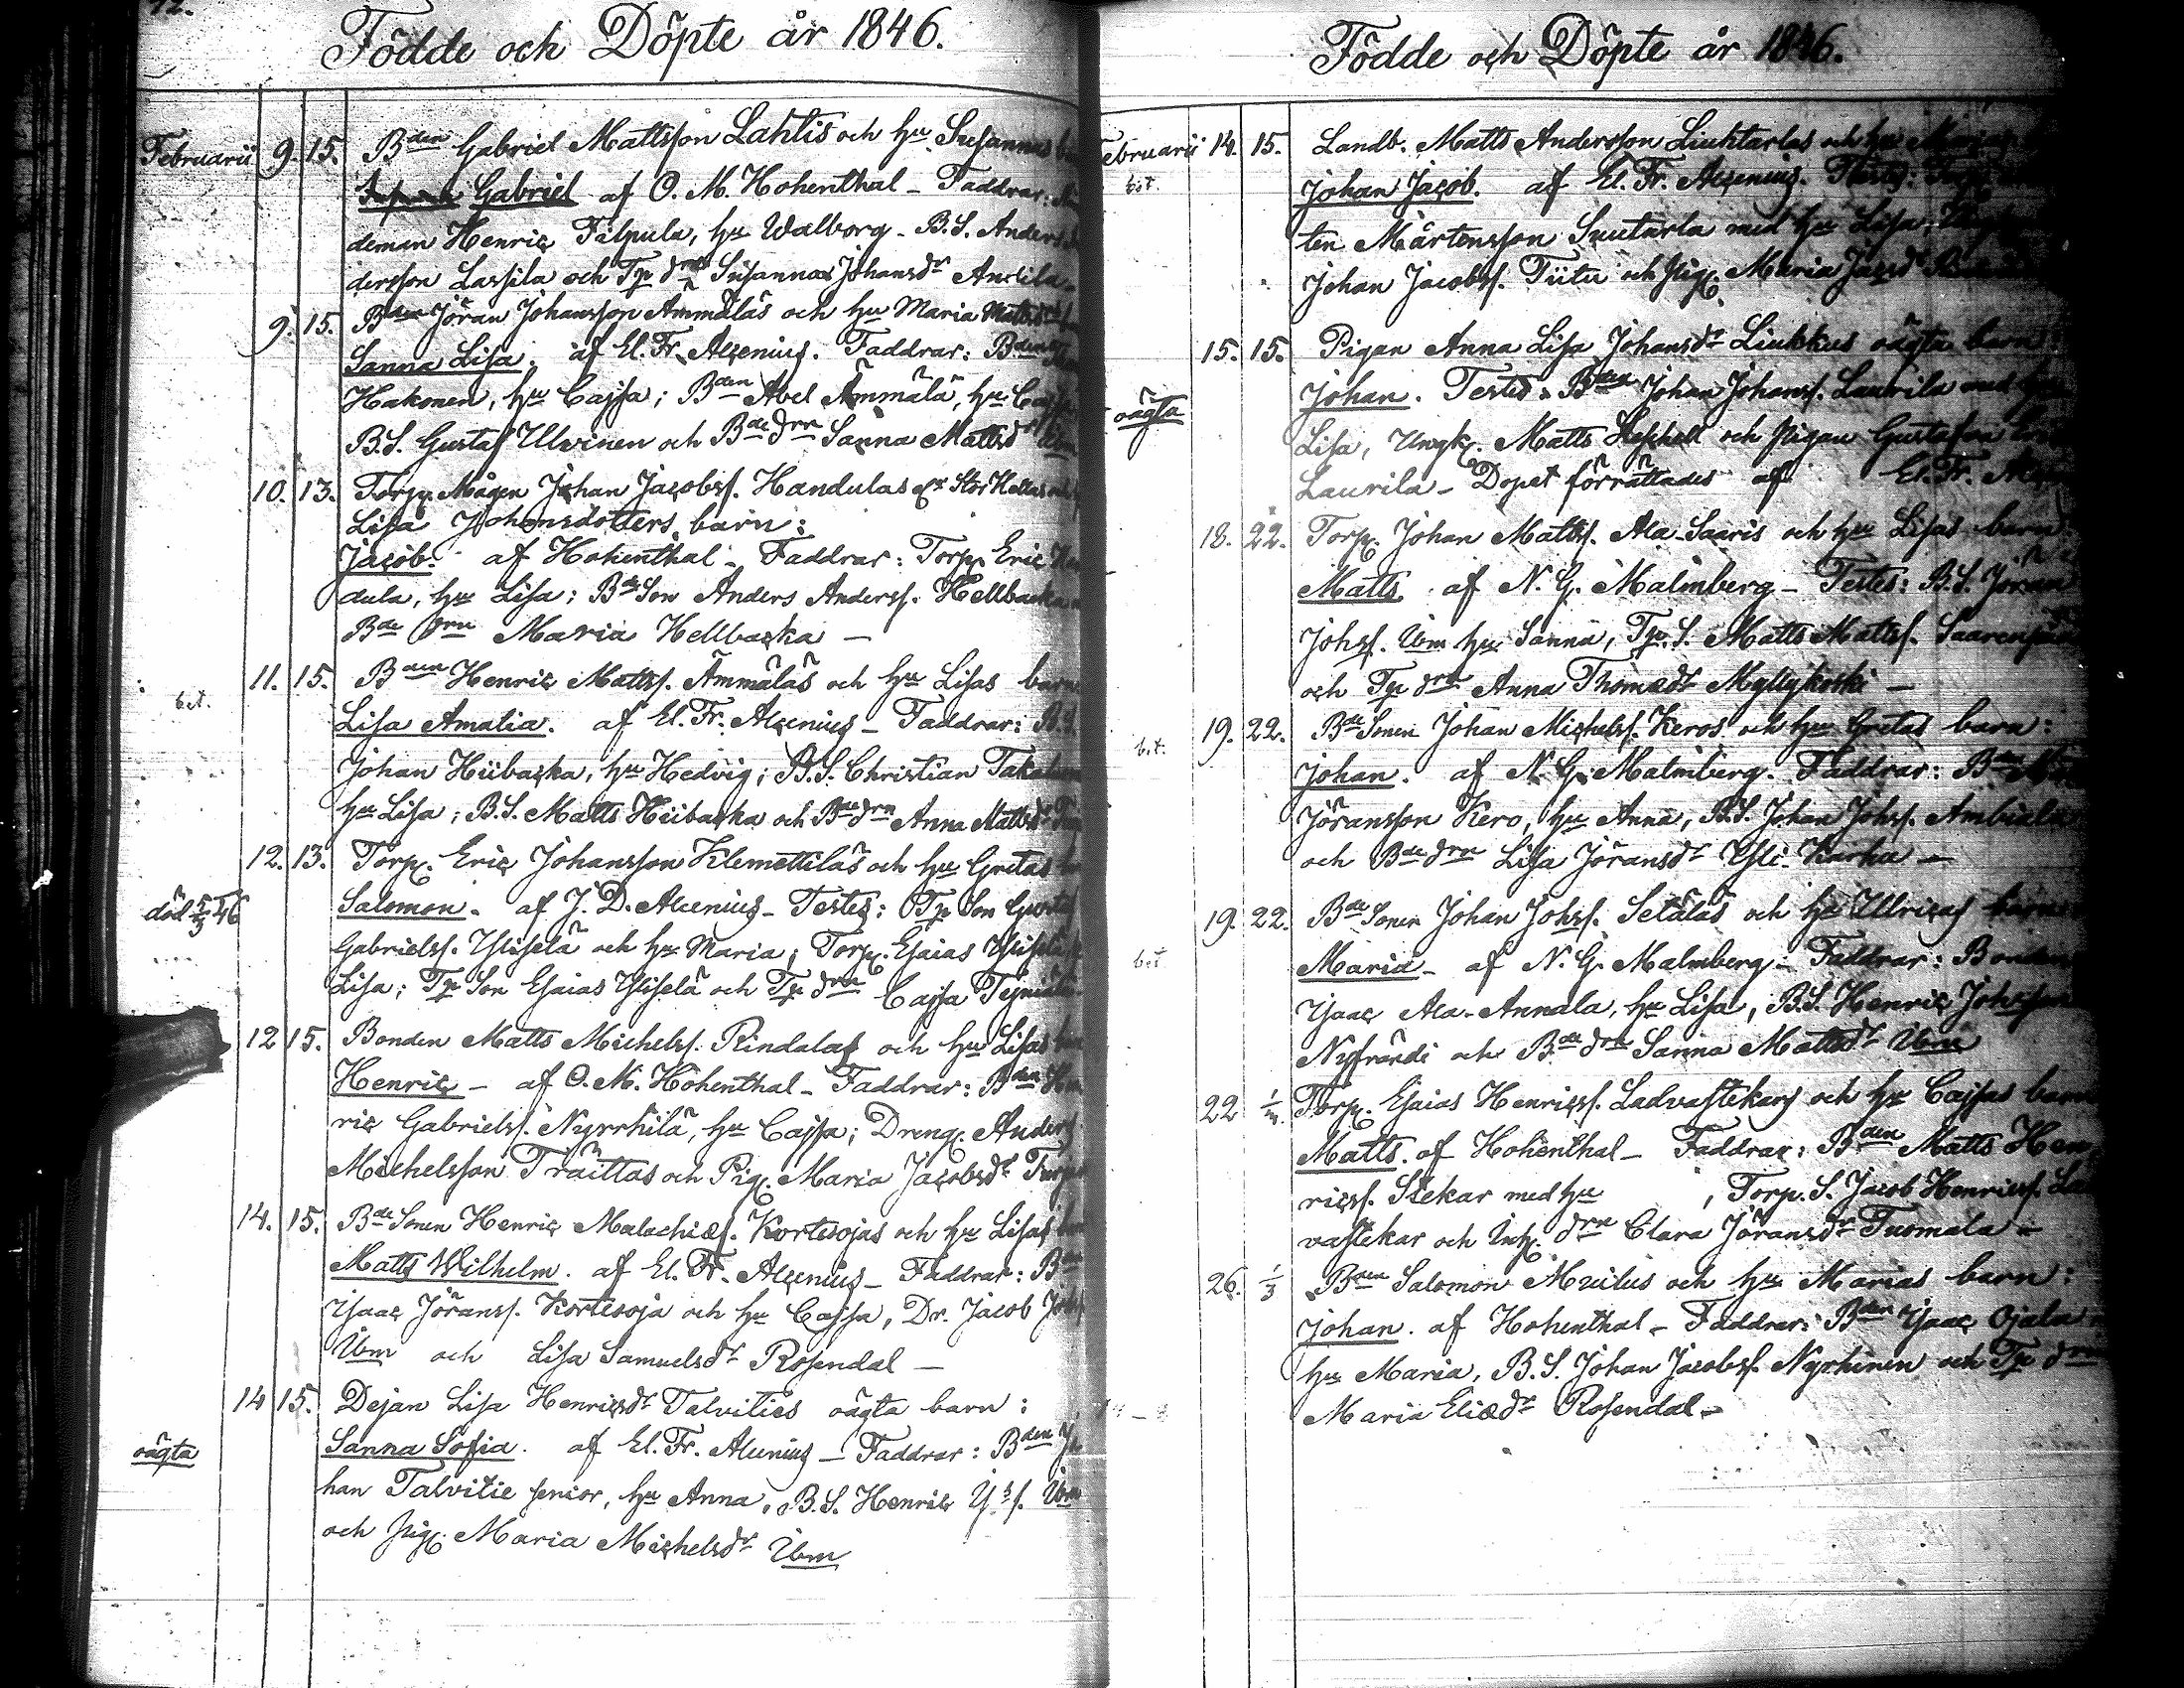 72.
Födde och Döpte år 1846.
Februarii 9. 15. Bden Gabriel Mattsson Lahtis och hu Susannas
Gabriel af O. M. Hohenthal - Faddrar:
deman Henric Filpula, hu Walborg - B.S. Anders
dersson Lassila och Tp drn Susanna Johansdr Anttila.
9. 15. Bden Jöran Johansson Ammäläs och hu Maria Mattsdr
Sanna Lisa. af El. Fr. Alcenius. Faddrar: Bden
Hakonen, hu Cajsa; Bden Abel Ämmälä, hu Cajsa
B.S. Gustaf Ulvinen och Bde drn Sanna Mattsdr Ibm
10. 13. Torp. Mågen Johan Jacobss. Handulas
Lisa Johansdotters barn:
Jacob. af Hohenthal - Faddrar: Torp. Eric
dula, hu Lisa; Bde Son Anders Anderss. Hellbacka
Bde drn Maria Hellbacka -
bet. 11. 15. Bden Henric Mattss. Ämmäläs och hu Lisas barn
Lisa Amalia. af El. Fr. Alcenius - Faddrar: B.S.
Johan Hiibacka, hu Hedvig; B.S. Christian
hu Lisa; B.S. Matts Hiibacka och Bde drn Anna Mattsdr
12. 13. Torp. Eric Johansson Klemettiläs och hu Gretas
död 5/3 46 Salomon. af J. D. Alcenius - Testes: Tp Son Gustaf
Gabrielss. Yliselä och hu Maria; Torp. Esaias
Lisa; Tp Son Esaias Yliselä och Tp drn Cajsa
12 15. Bonden Matts Michelss. Rindalas och hu Lisas
Henric - af O. M. Hohenthal - Faddrar: Bden Hen
ric Gabrielss. Nyrrhilä, hu Cajsa; Dreng. Anders
Michelsson Träittas och Pig. Maria Jacobsdr
14. 15. Bde Sonen Henric Malachiæs. Kortesojas och hu Lisas
Matts Wilhelm. af El. Fr. Alcenius - Faddrar: Bden
Isaac Jöranss. Kortesoja och hu Cajsa, Dr. Jacob
Ibm och Lisa Samuelsdr Rosendal -
14 15. Dejan Lisa Henricsdr Talvities oägta barn:
oägta Sanna Sofia. af El. Fr. Alcenius - Faddrar: Bden Jo
han Talvitie senior, hu Anna, B.S. Henric Ibm
och Pig. Maria Michelsdr Ibm
Födde och Döpte år 1846.
Februarii 14. 15. Landb. Matts Andersson Liuhtarlas och hu
bet. Johan Jacob. af El. Fr. Alcenius. Testes:
ten Mårtensson Suutarla med hu Lisa,
Johan Jacobss. Tiitu och Pig. Maria
15. 15. Pigan Anna Lisa Johansdr Liukkus oägta barn
oägta Johan. Testes: Bden Johan Johanss. Laurila med
Lisa, Ungk. Matts och Pigan Gustafva
Laurila - Dopet förrättades af El. Fr.
18. 22. Torp. Johan Mattss. Ala-Saaris och hu Lisas barn
Matts. af N. G. Malmberg - Testes: B.S. Jöran
Johss. Ibm hu Sanna, Tp. S. Matts Mattss. Saarenpää
och Tp drn Anna Thomædr Myllykoski -
bet. 19. 22. Bde Sonen Johan Michelss. Keros och hu Gretas barn:
Johan. af N. G. Malmberg. Faddrar: Bden
Jöransson Kero, hu Anna, B.S. Johan Johss. Ambiala
och Bde drn Lisa Jöransdr Yli-Karhu -
19. 22. Bde Sonen Johan Johss. Setäläs och hu Ulricas barn
bet Maria - af N. G. Malmberg - Faddrar: Bonden
Isaac Ala-Annala, hu Lisa, B.S. Henric Johansson
Nyfrändi och Bde drn Sanna Mattsdr Ibm
22 1/3 Torp. Esaias Henricss. Ladvastekars och hu Cajsas barn
Matts. af Hohenthal - Faddrar: Bden Matts Hen
ricss. Stekar med hu , Torp. S. Jacob Henricss. Lad
vastekar och Inh. drn Clara Jöransdr Tuomala -
26. 1/3 Bden Salomon Mulus och hu Marias barn:
Johan. af Hohenthal - Faddrar: Bden Isaac Ojala
hu Maria, B.S. Johan Jacobss. Nyrhinen och Tp drn
Maria Eliædr Rosendal -